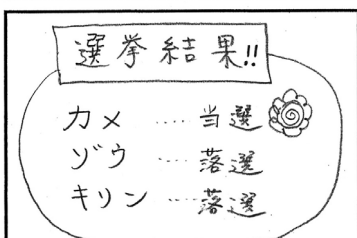 選挙結果!!
カメ……当選
ゾウ……落選
キリン……落選